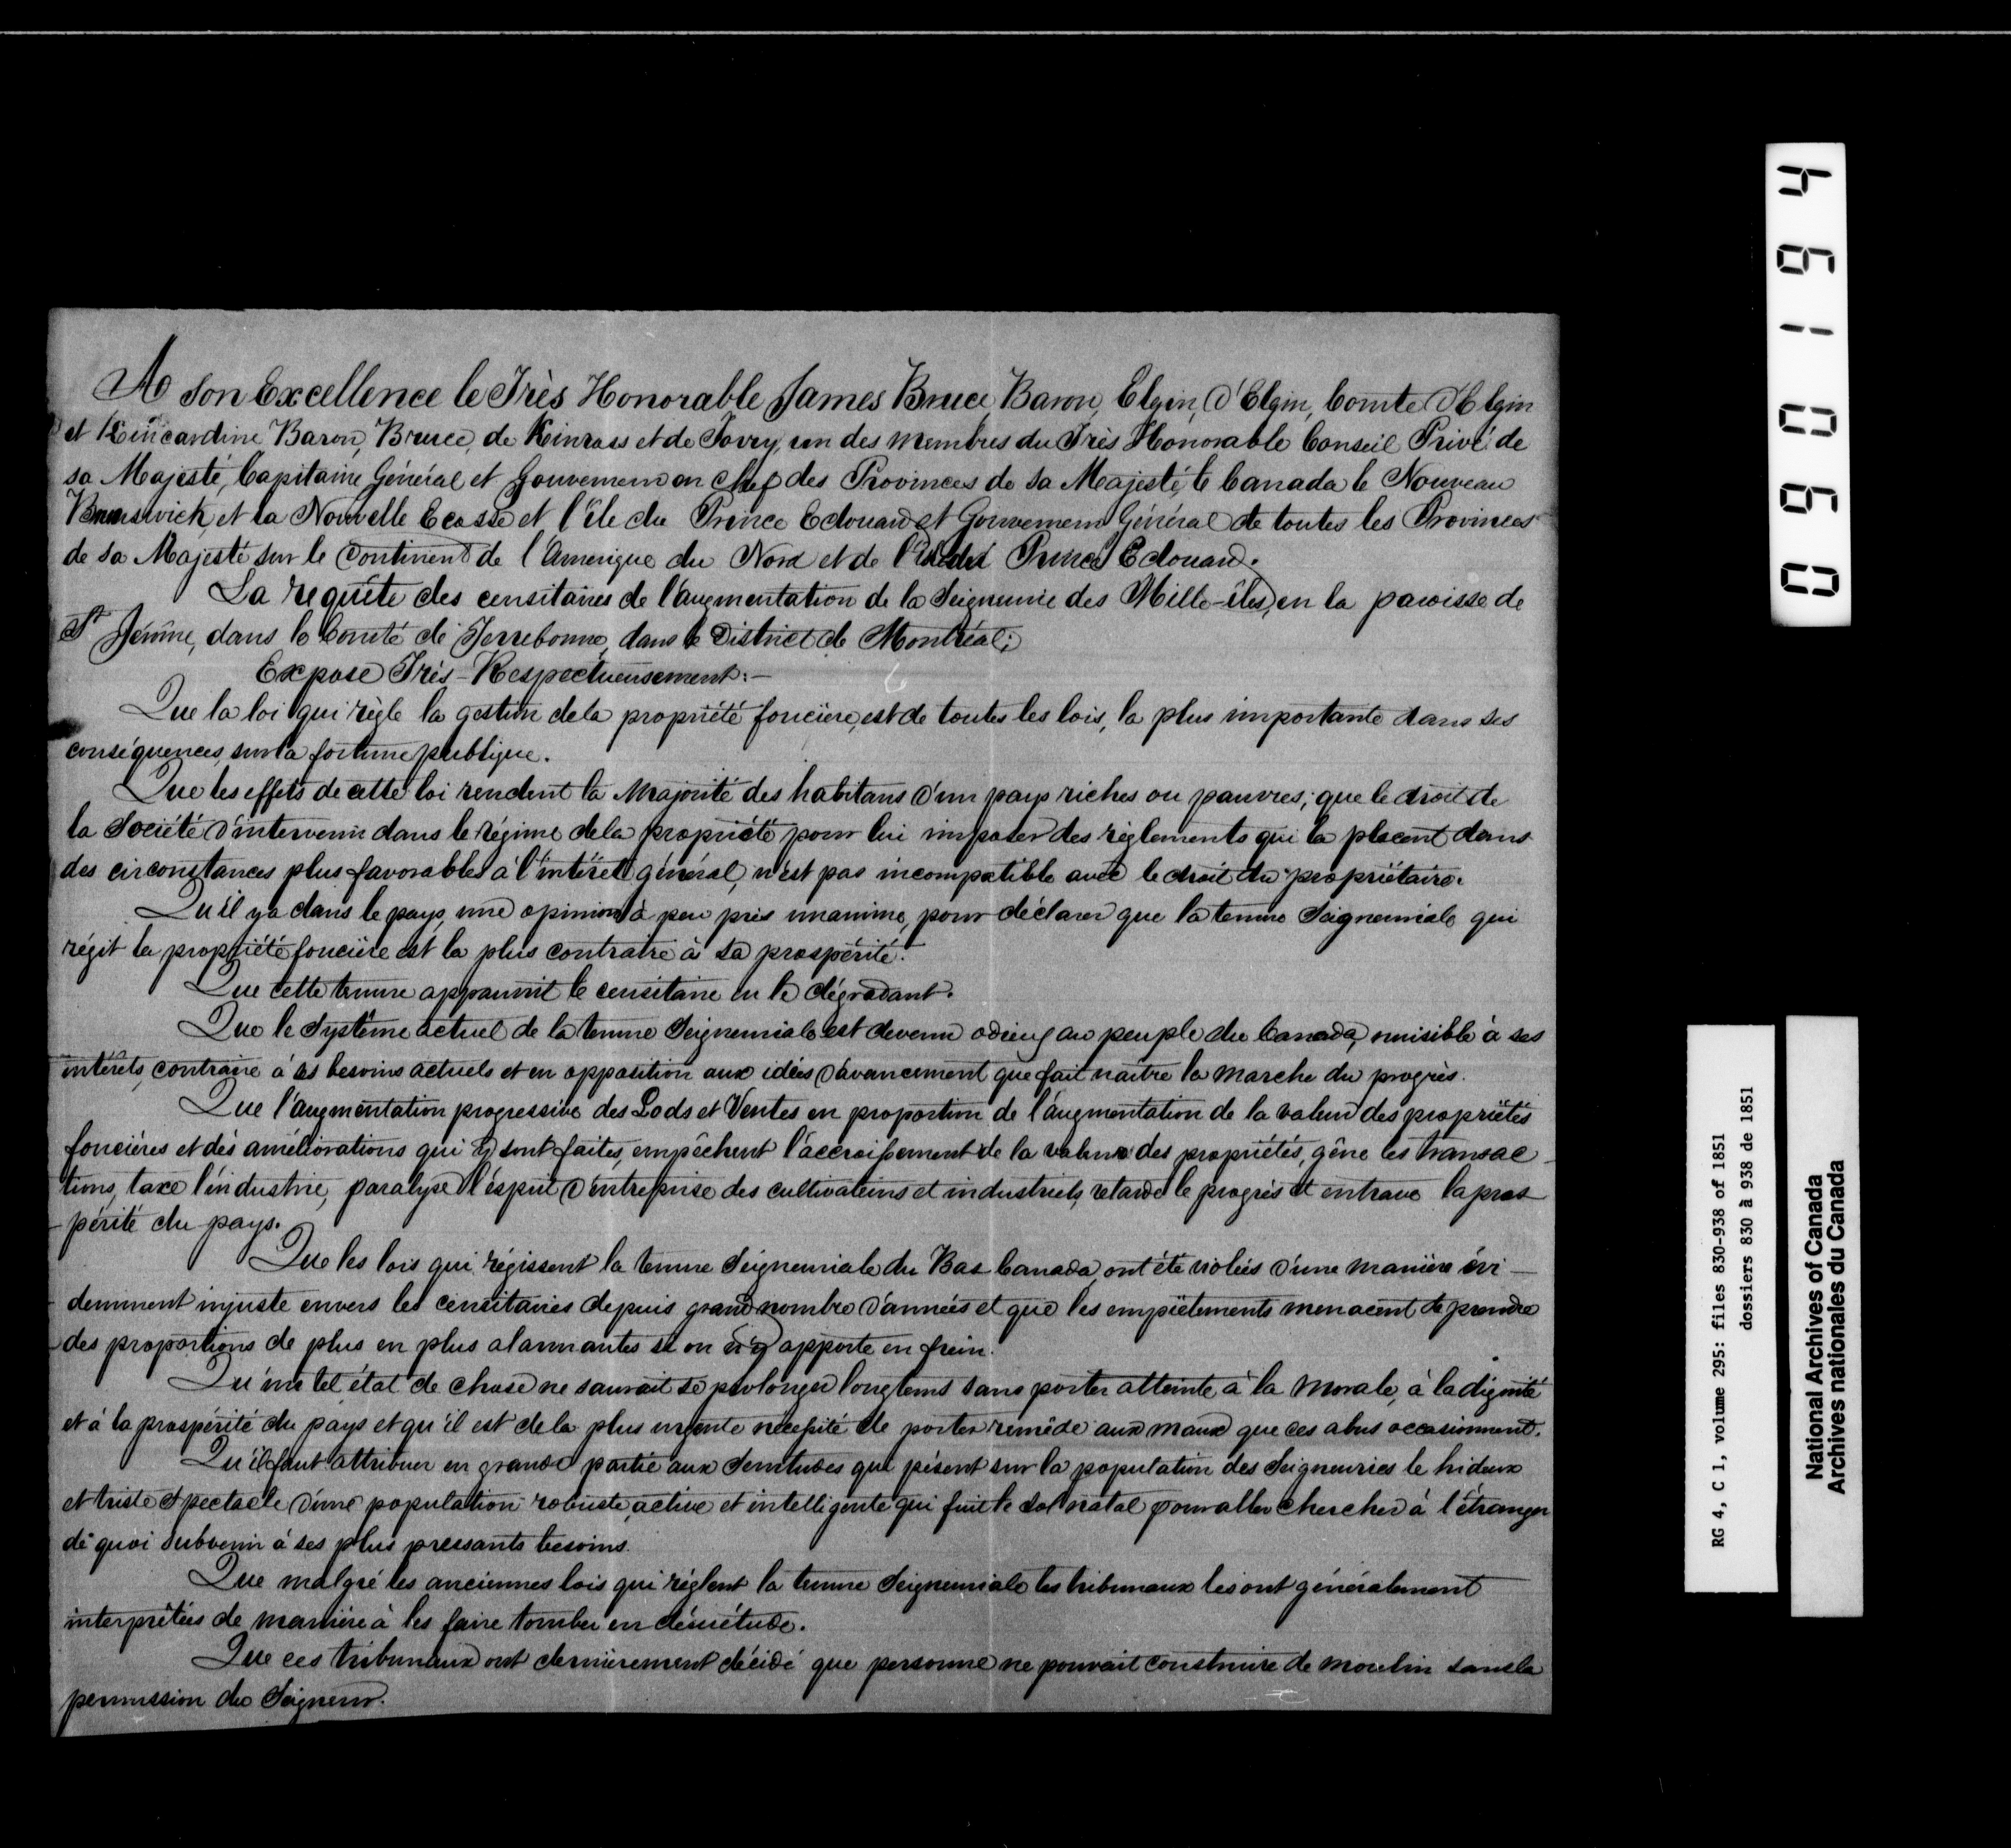 A Son Excellence le Très Honorable James Bruce, Baron, Elgin, d'Elgin, Comte d'Elgin
et Kincardine Baron, Bruce, de Kinross et de Torry, un des membres du Très Honorable Conseil Privé de
sa Majesté, Capitaine Général et Gouverneur en Chef des Provinces de sa Majesté, le Canada le Nouveau
Brunswick, et la Nouvelle Ecosse et l'île du Prince Edouard et Gouverneur Général de toutes les Provinces
de sa Majesté sur le Continent de l'Amerique du Nord et de l'Isle du Prince Edouard.
La requête des censitaires de l'augmentation de la Seigneurie des Mille-îles, en la paroisse de
St Jérôme, dans le Comté de Terrebonne, dans le District de Montréal;
Expose Très-Respectueusement:—
Que la loi qui règle la gestion de la propriété foncière, est de toutes les lois, la plus importante dans ses
conséquences, sur la fortune publique.
Que les effets de cette loi rendent la Majorité des habitans d'un pays riches ou pauvres; que le droit de
la Société d'intervenir dans le régime de la propriété pour lui imposer des règlements qui la placent dans
des circonstances plus favorables à l'intérêt général, n'est pas incompatible avec le droit du propriétaire.
Qu'il y a dans le pays, une opinion à peu près unanime, pour déclarer que la tenure Seigneuriale qui
régit la propriété foncière est la plus contraire à sa prospérité.
Que cette tenure appauvrit le censitaire en le dégradant.
Que le Système actuel de la tenure Seigneuriale est devenu odieux au peuple du Canada, nuisible à ses
intérêts, contraire à ses besoins actuels et en opposition aux idées d'avancement que fait naître la marche du progrès.
Que l'augmentation progressive des Lods et Ventes en proportion de l'augmentation de la valeur des propriétés
foncières et des améliorations qui y sont faites, empêchent l'accroissement de la valeur des propriétés, gêne les transac-
tions, taxe l'industrie, paralyse l'esprit d'entreprise des cultivateurs et industriels, retarde le progrès et entrave la pros
-périté du pays.
Que les lois qui régissent la tenure Seigneuriale du Bas Canada, ont été violées d'une manière évi—
demment injuste envers les censitaires depuis grand nombre d'années et que les empiètements menacent de prendre
des proportions de plus en plus alarmantes si on n'y apporte en frein.
Qu'un tel état de chose ne saurait se prolonger longtems sans porter atteinte à la Morale, à la dignité
et à la prospérité du pays et qu'il est de la plus urgente nécessité de porter remède aux maux que ces abus occasionnent.
Qu'il faut attribuer en grande partie aux Servitudes qui pèsent sur la population des Seigneuries le hideux
et triste Spectacle d'une population robuste, active et intelligente qui fuit le sol natal pour aller chercher à l'étranger
de quoi subvenir à ses plus pressants besoins.
Que malgré les anciennes lois qui règlent la tenure Seigneuriale les tribunaux les ont généralement
interprêtées de manière à les faire tomber en désuétude.
Que ces tribunaux ont dernièrement décidé que personne ne pouvait construire de moulin sans la
permission du Seigneur.
090194
RG 4, C 1, volume 295: files 830-938 of 1851
dossiers 830 à 938 de 1851
National Archives of Canada
Archives nationales du Canada